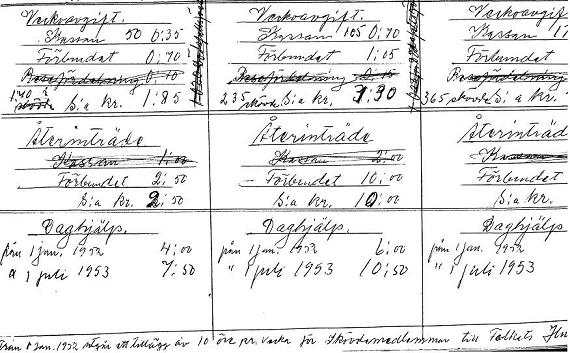 Veckoavgift.
Kassan 50 0:35
Förbundet 0:70
Resefördelning 0:10
1:40 S:a kr. 1:85
Återinträde
Kassan 1:00
Förbundet 2:50
S:a kr. 2:50
Daghjälp.
från 1 jan. 1952 4:00
" 1 juli 1953 7:50
Veckoavgift.
Kassan 105 0:70
Förbundet 1:05
Resefördelning 0:15
235 skövde S:a kr,
Återinträde
Kassan 2:00
Förbundet 10:00
S:a kr. 10:00
Daghjälp.
från 1 jan. 1952 6:00
" 1 juli 1953 10:50
Veckoavgif
Kassan
Förbundet
Resefördelning
365 skövde S:a kr.
Återinträd
Kassan
Förbundet
S:a kr.
Daghjälp
från 1 jan. 1952
" 1 juli 1953
Från 1 jan. 1952 utgår ett tillägg av 10 öre pr. vecka för Skövdemedlemmar till Folkets Hu